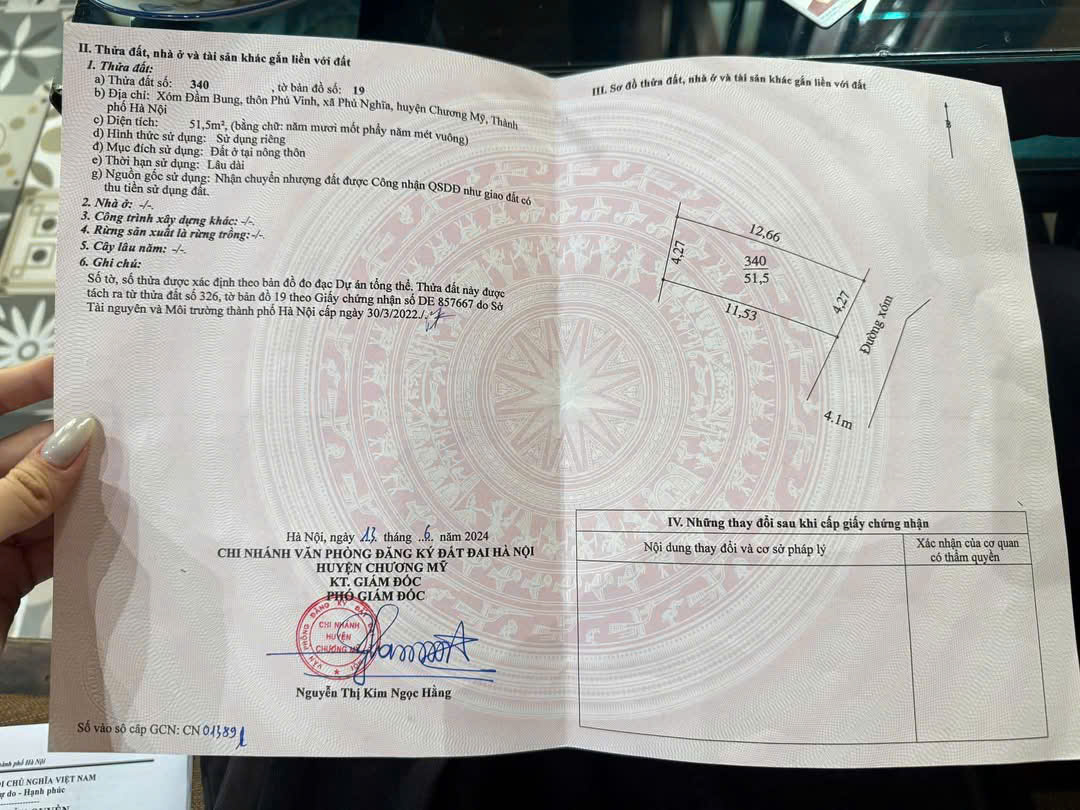 II. Thửa đất, nhà ở và tài sản khác gắn liền với đất
1. Thửa đất:
a) Thửa đất số: 340 , tờ bản đồ số: 19
b) Địa chỉ: Xóm Đầm Bung, thôn Phú Vinh, xã Phú Nghĩa, huyện Chương Mỹ, Thành
phố Hà Nội
c) Diện tích: 51,5m², (bằng chữ: năm mươi mốt phẩy năm mét vuông)
d) Hình thức sử dụng: Sử dụng riêng
đ) Mục đích sử dụng: Đất ở tại nông thôn
e) Thời hạn sử dụng: Lâu dài
g) Nguồn gốc sử dụng: Nhận chuyển nhượng đất được Công nhận QSDĐ như giao đất có
thu tiền sử dụng đất.
2. Nhà ở: -/-.
3. Công trình xây dựng khác: -/-.
4. Rừng sản xuất là rừng trồng:-/-.
5. Cây lâu năm: -/-.
6. Ghi chú:
Số tờ, số thửa được xác định theo bản đồ đo đạc Dự án tổng thể. Thửa đất này được
tách ra từ thửa đất số 326, tờ bản đồ 19 theo Giấy chứng nhận số DE 857667 do Sở
Tài nguyên và Môi trường thành phố Hà Nội cấp ngày 30/3/2022./.
Hà Nội, ngày 13 tháng 6 năm 2024
CHI NHÁNH VĂN PHÒNG ĐĂNG KÝ ĐẤT ĐAI HÀ NỘI
HUYỆN CHƯƠNG MỸ
KT. GIÁM ĐỐC
PHÓ GIÁM ĐỐC
VĂN PHÒNG ĐĂNG KÝ ĐẤT
CHI NHÁNH
HUYỆN
CHƯƠNG MỸ
Nguyễn Thị Kim Ngọc Hằng
Số vào sổ cấp GCN: CN 01389
III. Sơ đồ thửa đất, nhà ở và tài sản khác gắn liền với đất
B
12,66
4,27
340
51,5
4,27
11,53
Đường xóm
4.1m
IV. Những thay đổi sau khi cấp giấy chứng nhận
Nội dung thay đổi và cơ sở pháp lý
Xác nhận của cơ quan
có thẩm quyền
thành phố Hà Nội
I CHỦ NGHĨA VIỆT NAM
ự do - Hạnh phúc